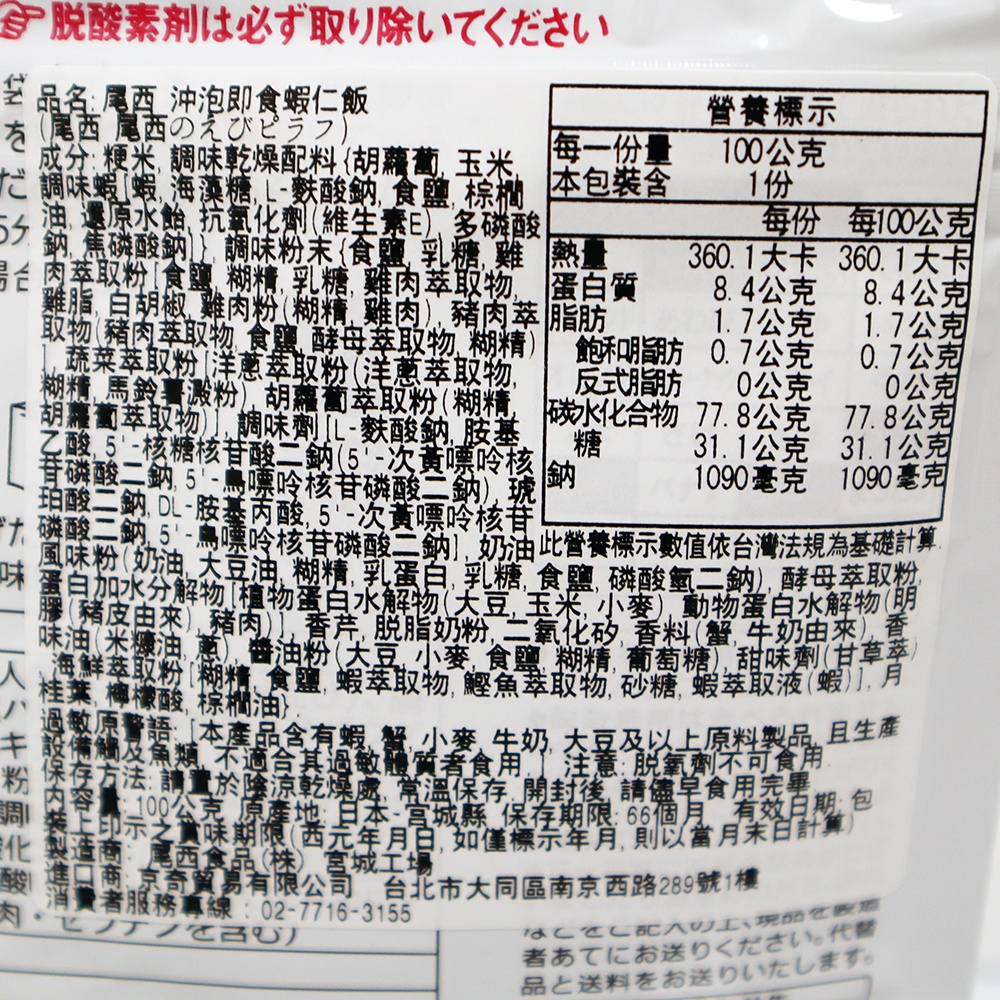 脱酸素剤は必ず取り除いてください
品名: 尾西 沖泡即食蝦仁飯
(尾西 尾西のえびピラフ)
成分: 粳米, 調味乾燥配料{胡蘿蔔, 玉米,
調味蝦[蝦, 海藻糖, L-麩酸鈉, 食鹽, 棕櫚
油, 還原水飴, 抗氧化劑(維生素E), 多磷酸
鈉, 焦磷酸鈉]}, 調味粉末{食鹽, 乳糖, 雞
肉萃取粉[食鹽, 糊精, 乳糖, 雞肉萃取物,
雞脂, 白胡椒, 雞肉粉(糊精, 雞肉), 豬肉萃
取物(豬肉萃取物, 食鹽, 酵母萃取物, 糊精)
], 蔬菜萃取粉[洋蔥萃取粉(洋蔥萃取物,
糊精, 馬鈴薯澱粉), 胡蘿蔔萃取粉(糊精,
胡蘿蔔萃取物)], 調味劑[L-麩酸鈉, 胺基
乙酸, 5'-核糖核苷酸二鈉(5'-次黃嘌呤核
苷磷酸二鈉, 5'-鳥嘌呤核苷磷酸二鈉), 琥
珀酸二鈉, DL-胺基丙酸, 5'-次黃嘌呤核苷
磷酸二鈉, 5'-鳥嘌呤核苷磷酸二鈉], 奶油
風味粉(奶油, 大豆油, 糊精, 乳蛋白, 乳糖, 食鹽, 磷酸氫二鈉), 酵母萃取粉,
蛋白加水分解物[植物蛋白水解物(大豆, 玉米, 小麥), 動物蛋白水解物(明
膠(豬皮由來), 豬肉)], 香芹, 脱脂奶粉, 二氧化矽, 香料(蟹, 牛奶由來), 香
味油(米糠油, 蔥), 醬油粉(大豆, 小麥, 食鹽, 糊精, 葡萄糖), 甜味劑(甘草萃)
, 海鮮萃取粉[糊精, 食鹽, 蝦萃取物, 鰹魚萃取物, 砂糖, 蝦萃取液(蝦)], 月
桂葉, 檸檬酸, 棕櫚油}.
過敏原警語: [本產品含有蝦, 蟹, 小麥, 牛奶, 大豆及以上原料製品, 且生產
設備觸及魚類, 不適合其過敏體質者食用], 注意: 脱氧劑不可食用.
保存方法: 請置於陰涼乾燥處, 常溫保存, 開封後, 請儘早食用完畢
內容量: 100公克 原產地: 日本-宮城縣 保存期限: 66個月 有效日期: 包
裝上印示之賞味期限(西元年月日, 如僅標示年月, 則以當月末日計算)
製造商: 尾西食品(株) 宮城工場
進口商: 京奇貿易有限公司 台北市大同區南京西路289號1樓
消費者服務專線: 02-7716-3155
營養標示
每一份量 100公克
本包裝含 1份
每份 每100公克
熱量 360.1大卡 360.1大卡
蛋白質 8.4公克 8.4公克
脂肪 1.7公克 1.7公克
飽和脂肪 0.7公克 0.7公克
反式脂肪 0公克 0公克
碳水化合物 77.8公克 77.8公克
糖 31.1公克 31.1公克
鈉 1090毫克 1090毫克
此營養標示數值依台灣法規為基礎計算.
者あてにお送りください。代替
品と送料をお送りいたします。